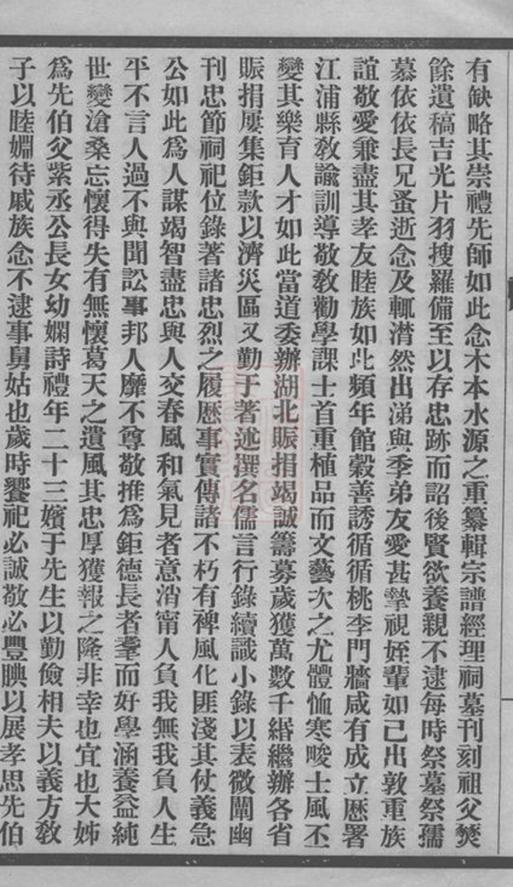 有缺略其崇禮先師如此念木本水源之重纂輯宗譜經理祠墓刊刻祖父燹
餘遺稿吉光片羽搜羅備至以存忠跡而詔後賢欲養親不逮每時祭墓祭孺
慕依依長兄蚤逝念及輒潸然出涕與季弟友愛甚摯視姪輩如己出敦重族
誼敬愛兼盡其孝友睦族如此頻年館穀善誘循循桃李門牆咸有成立歷署
江浦縣敎諭訓導敬敎勸學課士首重植品而文藝次之尤體恤寒畯士風丕
變其樂育人才如此當道委辦湖北賑捐竭誠籌募歲獲萬數千緡繼辦各省
賑捐屢集鉅款以濟災區又勤于著述撰名儒言行錄續識小錄以表微闡幽
刊忠節祠祀位錄著諸忠烈之履歷事實傳諸不朽有裨風化匪淺其仗義急
公如此爲人謀竭智盡忠與人交春風和氣見者意消甯人負我無我負人生
平不言人過不與聞訟事邦人靡不尊敬推爲鉅德長者耄而好學涵養益純
世變滄桑忘懷得失有無懷葛天之遺風其忠厚獲報之隆非幸也宜也大姊
爲先伯父紫丞公長女幼嫻詩禮年二十三嬪于先生以勤儉相夫以義方敎
子以睦婣待戚族念不逮事舅姑也歲時饗祀必誠敬必豐腆以展孝思先伯